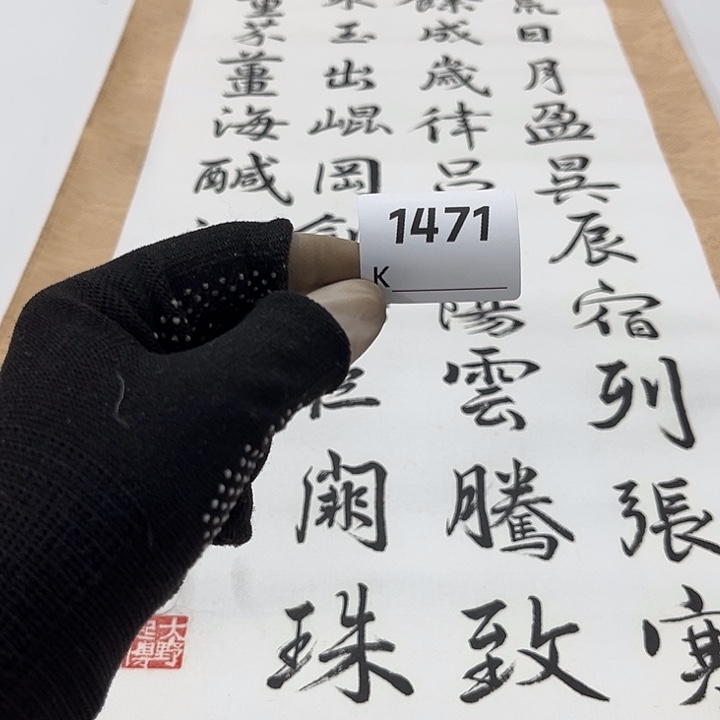 荒日月盈昃辰宿列張寒
餘成歲律呂陽雲騰致
水玉出崐岡劍巨闕珠
重芥薑海鹹
1471
K
大野